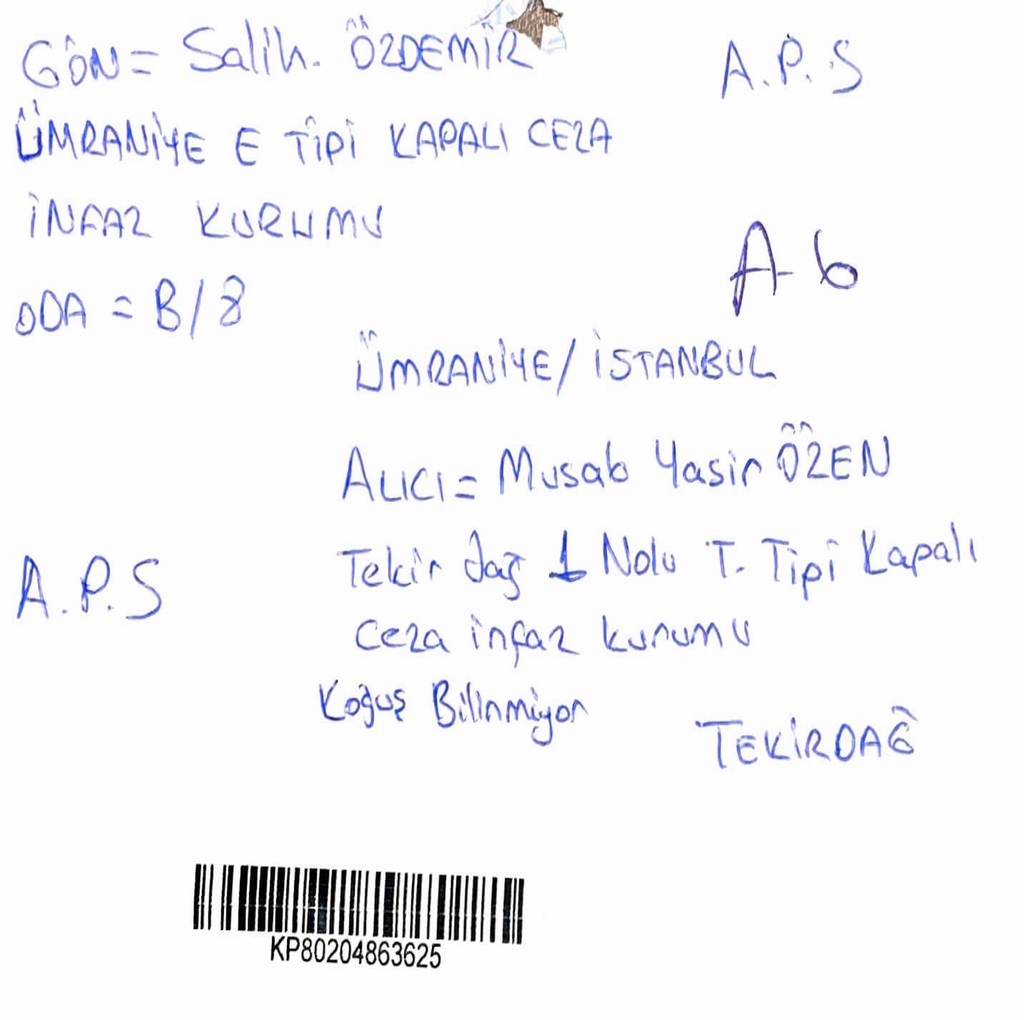 GÖN= Salih. ÖZDEMİR
A.P.S
ÜMRANİYE E TİPİ KAPALI CEZA
İNFAZ KURUMU
A-6
ODA = B/8
ÜMRANİYE/İSTANBUL
ALICI= Musab Yasir ÖZEN
Tekir dağ 1 Nolu T. Tipi Kapalı
A.P.S
Ceza infaz kurumu
Koğuş Bilinmiyor
TEKİRDAĞ
KP80204863625